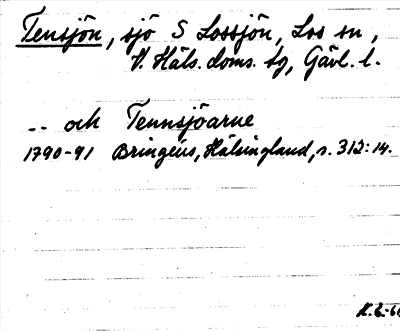 Tensjön, sjö S Lossjön, Los sn,
V. Häls. doms. tg, Gävl. l.
-- och Tennsjöarne
1790-91 Bringéus, Hälsingland, s. 312:14.